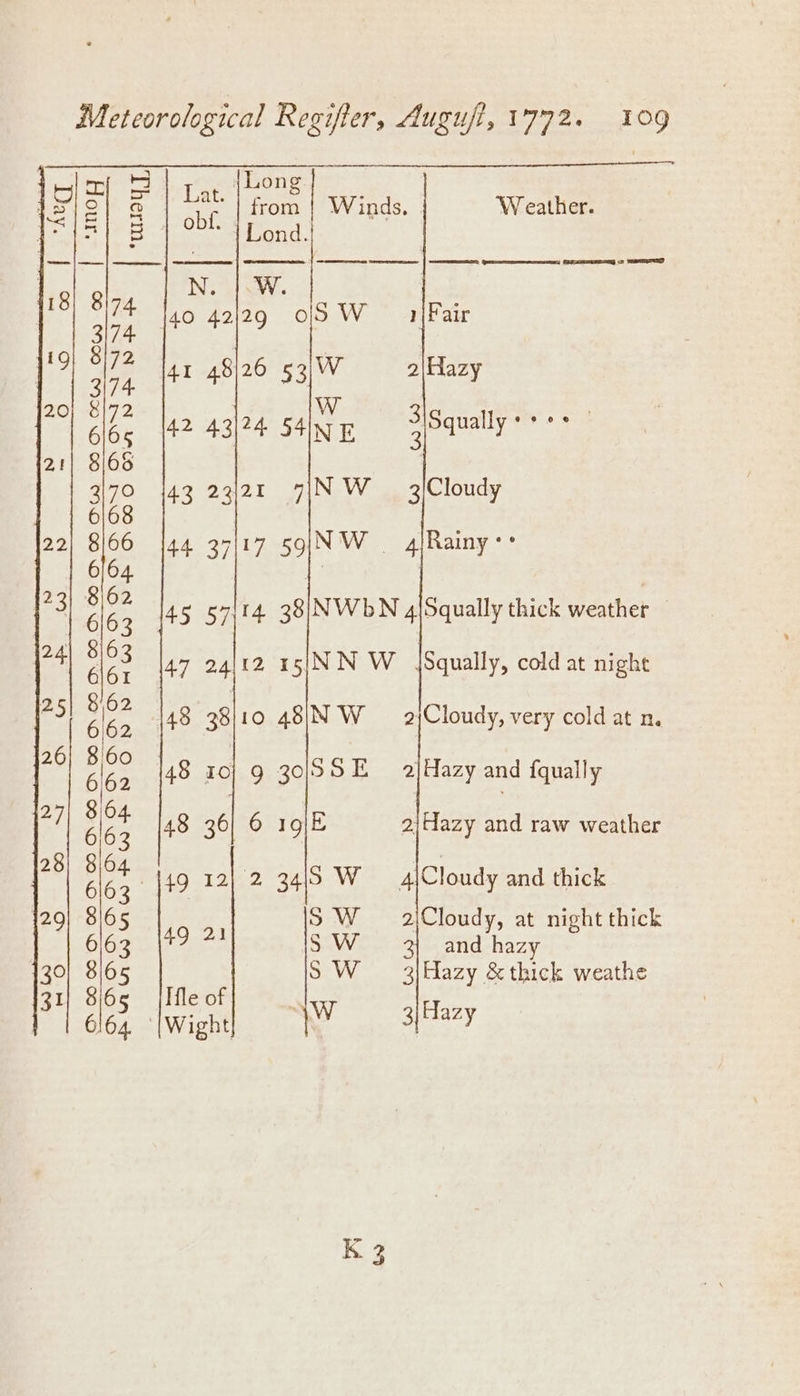 Meteorological Regiſter, Auguſt, 1772. 109
Day. | Hour. | Therm. | Lat. obſ. | Long from Lond. | Winds. | Weather.
N. | W.
18 | 8 | 74 | 40 42 | 29 0 | S W 1 | Fair
3 | 74
19 | 8 | 72 | 41 48 | 26 53 | W 2 | Hazy
3 | 74
20 | 8 | 72 | 42 43 | 24 54 | W 3 | Squally • • • •
6 | 65 | N E 3
21 | 8 | 68
3 | 70 | 43 23 | 21 7 | N W 3 | Cloudy
6 | 68
22 | 8 | 66 | 44 37 | 17 59 | N W 4 | Rainy • •
6 | 64
23 | 8 | 62 | 45 57 | 14 38 | NWbN 4 | Squally thick weather
6 | 63
24 | 8 | 63 | 47 24 | 12 15 | N N W | Squally, cold at night
6 | 61
25 | 8 | 62 | 48 38 | 10 48 | N W 2 | Cloudy, very cold at n.
6 | 62
26 | 8 | 60 | 48 10 | 9 30 | S S E 2 | Hazy and ſqually
6 | 62
27 | 8 | 64 | 48 36 | 6 19 | E 2 | Hazy and raw weather
6 | 63
28 | 8 | 64 | 49 12 | 2 34 | S W 4 | Cloudy and thick
6 | 63
29 | 8 | 65 | 49 21 | S W 2 | Cloudy, at night thick
6 | 63 | S W 3 | and hazy
30 | 8 | 65 | S W 3 | Hazy & thick weathe
31 | 8 | 65 | Iſle of | W 3 | Hazy
6 | 64 | Wight
K 3